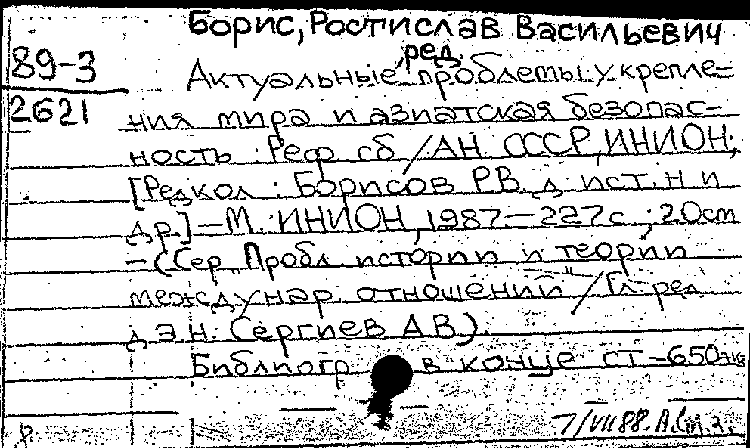 Борис, Ростислав Васильевич
, ред.
89-3
2621
Актуальные проблемы укрепле-
ния мира и азиатская безопас-
ность: Реф. сб / АН СССР, ИНИОН;
[Редкол.: Борисов Р.В. д. ист. н и
др.] – М.: ИНИОН, 1987. – 227 с.; 20 см
– (Сер. "Пробл. истории и теории
междунар. отношений" / Гл. ред.
д.э.н. Сергиев А.В.).
Библиогр. в конце ст. – 650 экз
7/VII 88.